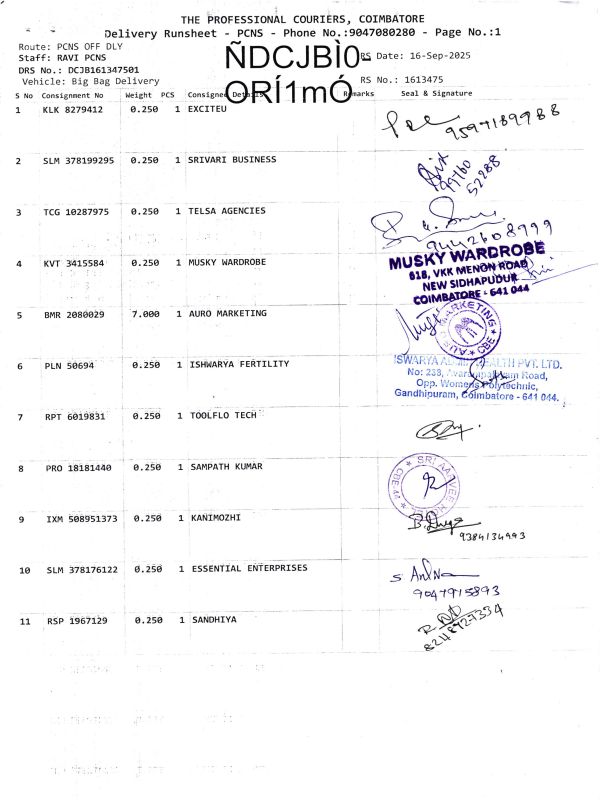 THE PROFESSIONAL COURIERS, COIMBATORE
Delivery Runsheet - PCNS - Phone No.:9047080280 - Page No.:1
Route: PCNS OFF DLY
Staff: RAVI PCNS
ÑDCJBÌ0-
RS Date: 16-Sep-2025
DRS No.: DCJB161347501
Vehicle: Big Bag Delivery
ORÍ1mÓ
RS No.: 1613475
S No Consignment No Weight PCS Consignee Details Remarks Seal & Signature
1 KLK 8279412 0.250 1 EXCITEU
9597189988
2 SLM 378199295 0.250 1 SRIVARI BUSINESS
99760
52288
3 TCG 10287975 0.250 1 TELSA AGENCIES
9442608999
4 KVT 3415584 0.250 1 MUSKY WARDROBE
MUSKY WARDROBE
618, VKK MENON ROAD
NEW SIDHAPUDUR
COIMBATORE - 641 044
5 BMR 2080029 7.000 1 AURO MARKETING
MARKETING
CBE
6 PLN 50694 0.250 1 ISHWARYA FERTILITY
HEALTH PVT. LTD.
No: 238, Avarampalayam Road,
Opp. Womens Polytechnic,
Gandhipuram, Coimbatore - 641 044.
7 RPT 6019831 0.250 1 TOOLFLO TECH
8 PRO 18181440 0.250 1 SAMPATH KUMAR
SRI
9 IXM 508951373 0.250 1 KANIMOZHI
9384134993
10 SLM 378176122 0.250 1 ESSENTIAL ENTERPRISES
9047915893
11 RSP 1967129 0.250 1 SANDHIYA
8248927334